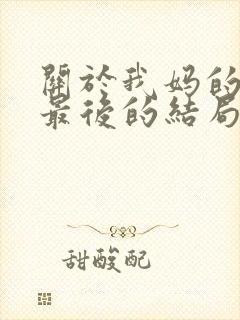 關於我媽的
最後的結局
甜酸配